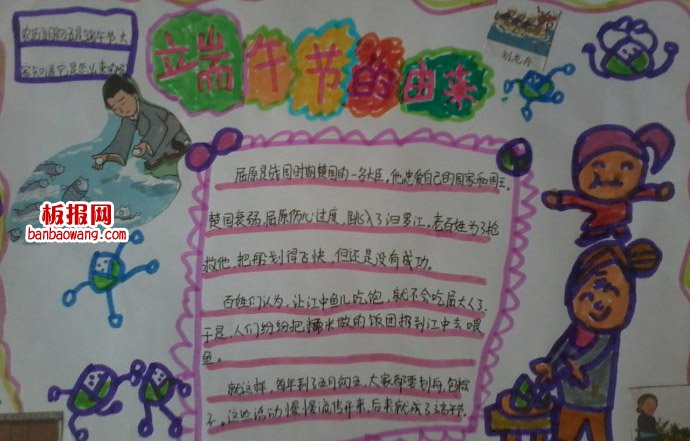 端午节的由来
划龙舟
屈原是战国时期楚国的一名大臣，他忠爱自己的国家和国王。
楚国衰弱，屈原伤心过度，跳入了汩罗江。老百姓为了抢
救他，把船划得飞快，但还是没有成功。
百姓们认为，让江中鱼儿吃饱，就不会吃屈大人了，
于是，人们纷纷把糯米做的饭团扔到江中去喂
鱼。
就这样，每年到了五月初五，大家都要划舟，包粽
子。这些活动慢慢流传开来，后来就成了端午节。
板报网
banbaowang.com